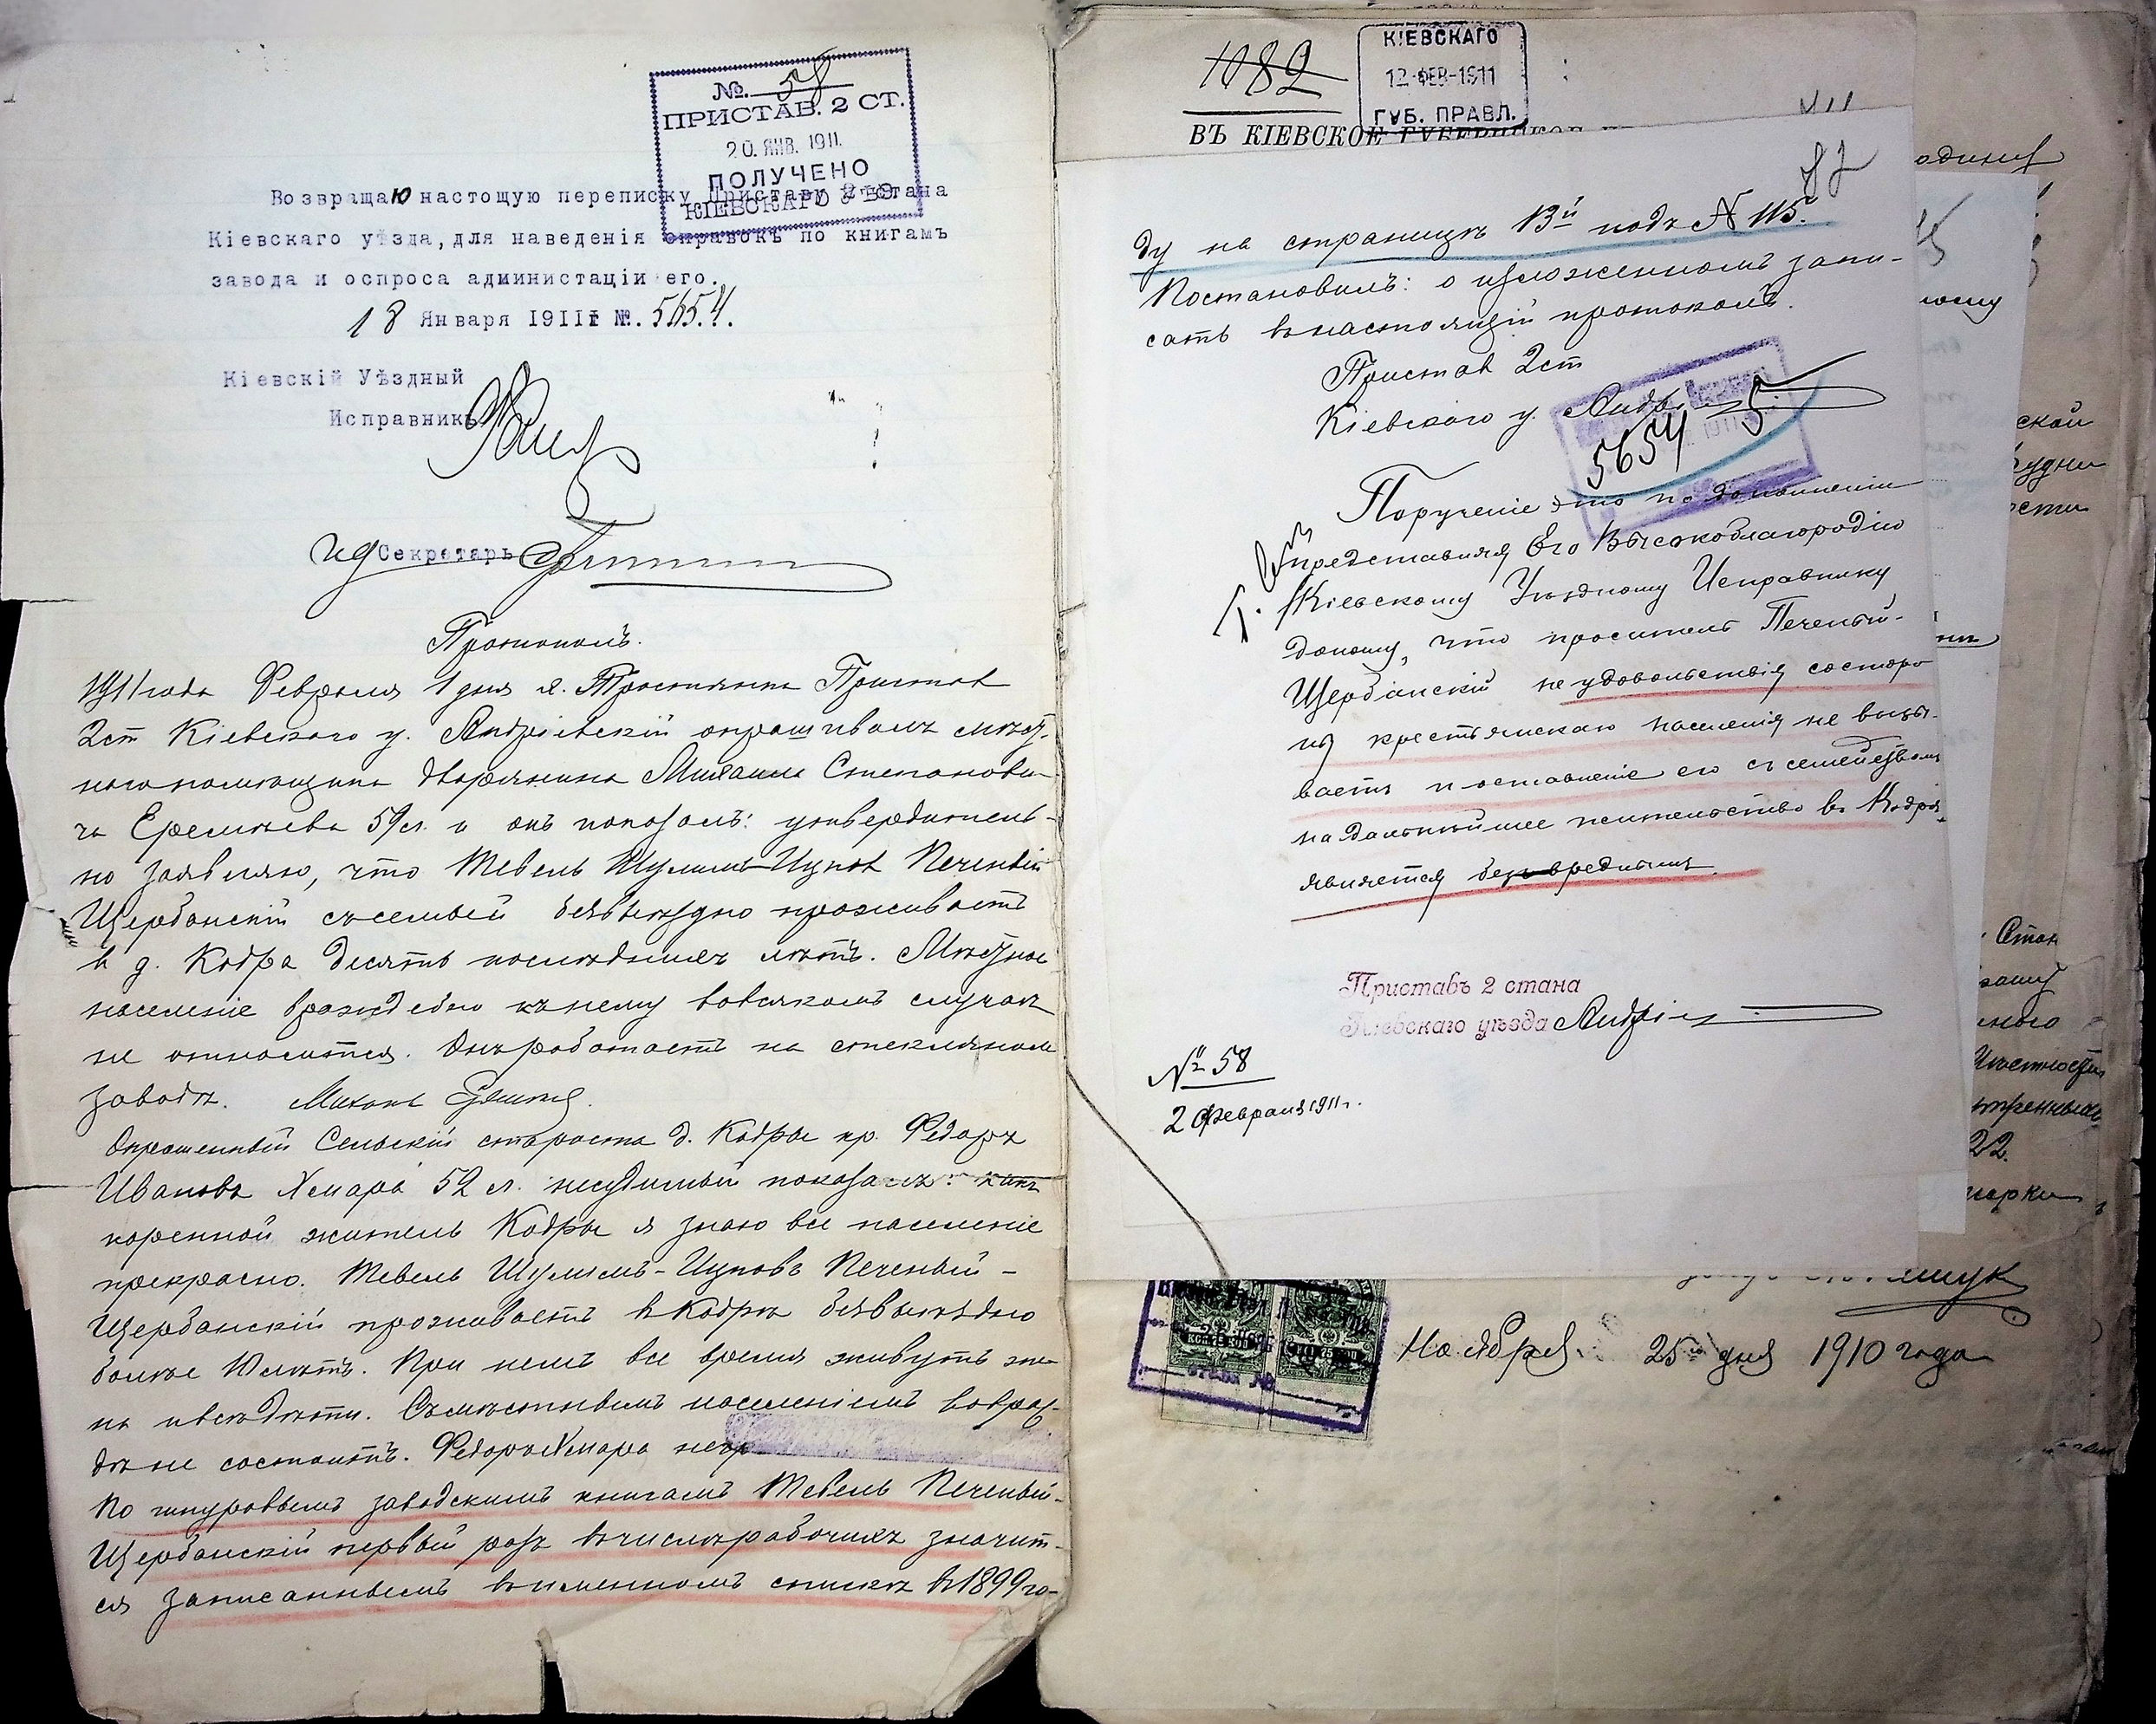 №. 58
ПРИСТАВ. 2 СТ.
20. ЯНВ. 1911.
ПОЛУЧЕНО
КІЕВСКАГО У-ВО
Возвращаю настощую переписку Приставу 2 стана
Кіевскаго уѣзда, для наведенія справокъ по книгамъ
завода и оспроса администаціи его.
18 Января 1911г №. 5654.
Кіевскій Уѣздный
Исправникъ
ид Секретарь
Протоколъ.
1911 года Февраля 1 дня я. Пристав
2 ст Кіевскаго у. Андріевскій опрашивалъ мѣст-
наго помѣщика дворянина Михаила Степанови-
ча 59 л. и онъ показалъ: утвердитель-
но заявляю, что Тевель Шулимъ-Ицков Печеный
Щербанскій съ семьей безвыѣздно проживаетъ
в д. Кодра десять послѣднихъ лѣтъ. Мѣстное
населеніе враждебно къ нему вовсякомъ случаѣ
не относится. Онъ работаетъ на стеклянном
заводѣ. Михаил
Опрошенный Сельскій староста д. Кодры кр. Федоръ
Иванова Хмара 52 л. несудимый показалъ: какъ
коренной житель Кодры я знаю все населеніе
прекрасно. Тевель Шулимъ-Ицковъ Печеный-
Щербанскій проживаетъ в Кодрѣ безвыѣздно
болѣе 10 лѣтъ. При немъ все время живутъ же-
на и всѣ дѣти. Съ мѣстнымъ населеніемъ во враж-
дѣ не состоитъ. Федоръ Хмара негр
По шнуровымъ заводскимъ книгамъ Тевель Печеный-
Щербанскій первый разъ въ числѣ рабочихъ значит-
ся записаннымъ в именномъ спискѣ в 1899 го-
1082
КІЕВСКАГО
12 ФЕВ 1911
ГУБ. ПРАВЛ.
ВЪ КІЕВСКОЕ ГУБЕРНСКОЕ
ду на страницѣ 13й подъ № 115.
Постановилъ: о изложенномъ запи-
сать въ настоящій протоколъ.
Пристав 2 ст
Кіевскаго у.
5654
Порученіе это по дополненіи
представляя Его Высокоблагородію
Г. Кіевскому Уѣздному Исправнику
доношу, что проситель Печеный-
Щербанскій неудовольствія со сторо-
ны крестьянскаго населенія не вызы-
ваетъ и оставленіе его съ семейством
на дальнѣйшее жительство в Кодрѣ
является безвреднымъ.
Приставъ 2 стана
Кіевскаго уѣзда
№ 58
2 февраля 1911 г.
Ноября 25го дня 1910 года